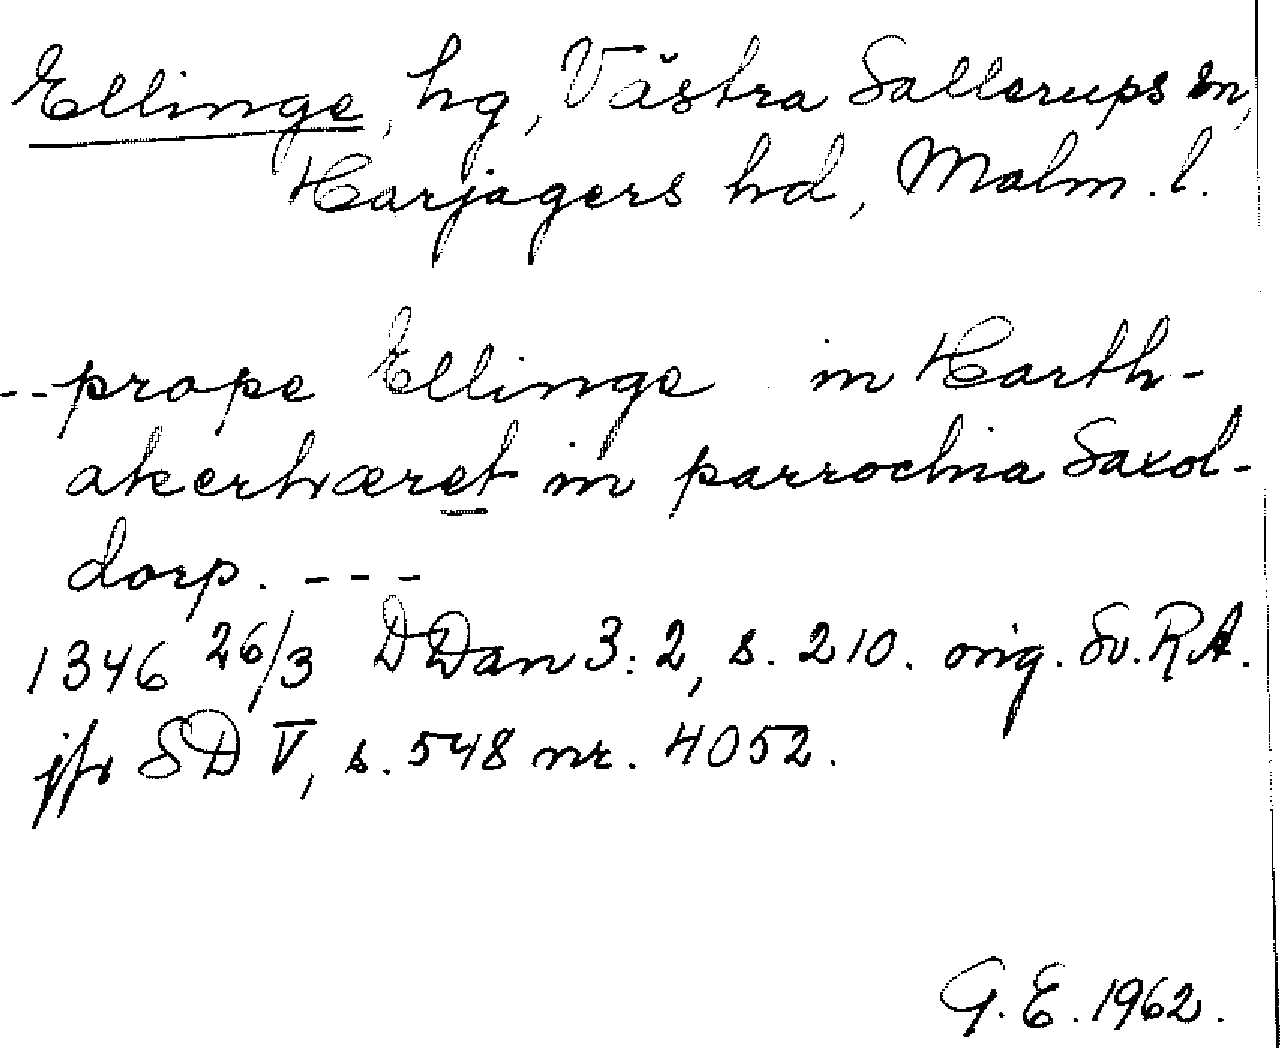 Ellinge, hg, Västra Sallerups sn,
Harjagers hd, Malm. l.
-- prope Ellinge in Harth-
akerhæret in parrochia Saxol-
dorp. - - -
1346 26/3 DDan 3:2, s. 210. orig. Sv. RA.
jfr SD V, s. 548 nr. 4052.
G. E. 1962.